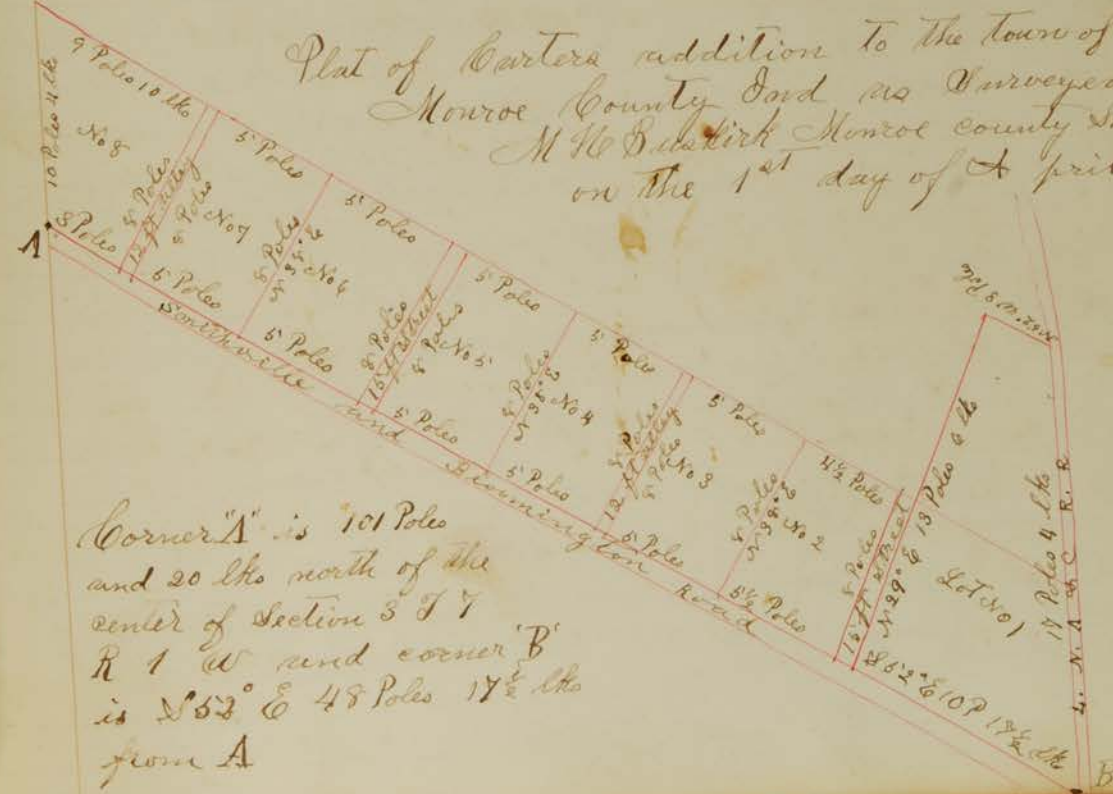 Plat of Carters addition to the town of
Monroe County Ind as Surveye
M H Buskirk Monroe county
on the 1st day of Apri
9 Poles 10 lks
10 Poles 4 lk
No 8
8 Poles
12 ft alley
8 Poles
No 7
5 Poles
A
3 Poles
5 Poles
8 Poles
No 6
5 Poles
5 Poles
8 Poles
16 ft street
8 Poles
No 5
5 Poles
5 Poles
8 Poles
No 4
5 Poles
5 Poles
8 Poles
12 ft alley
8 Poles
No 3
5 Poles
5 Poles
8 Poles
No 2
4½ Poles
5½ Poles
8 Poles
16 ft street
N 29° E 13 Poles 6 lks
Lot No 1
17 Poles 4 lks
L. N. A & C R. R
S 52° E 10 P 17½ lks
B
Smithville and Bloomington Road
Corner "A" is 101 Poles
and 20 lks north of the
center of Section 3 T 7
R 1 W and corner "B"
is S 52° E 48 Poles 17½ lks
from A